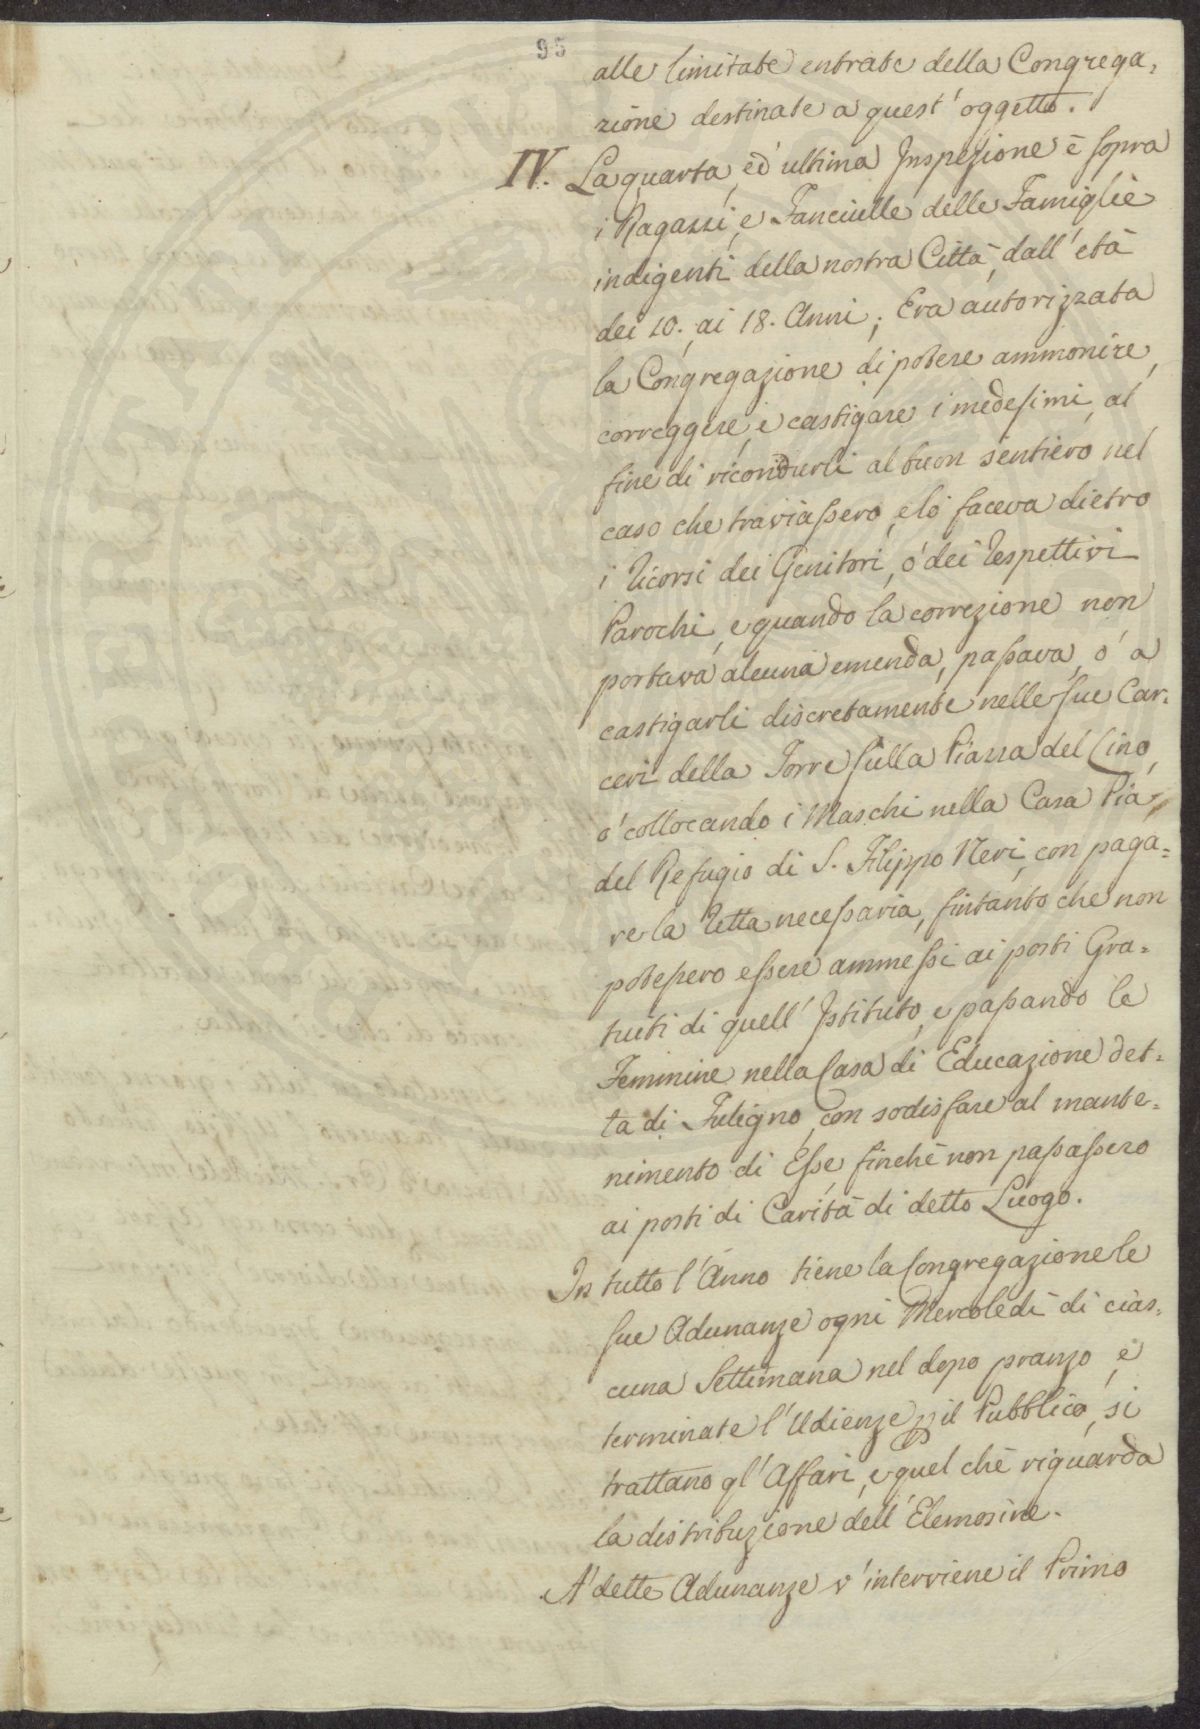 95
alle limitate entrate della Congrega,
zione destinate a quest'oggetto.
IV. La quarta, ed ultima Inspezione è sopra
i Ragazzi, e Fanciulle delle Famiglie
indigenti della nostra Città, dall'età
dei 10. ai 18. Anni; Era autorizzata
la Congregazione di potere ammonire,
correggere, e castigare i medesimi, al
fine di ricondurli al buon sentiero nel
caso che traviassero, e lo faceva dietro
i Ricorsi dei Genitori, o' dei Respettivi
Parochi, e quando la correzione non
portava alcuna emenda, passava, o' a
castigarli discretamente nelle sue Car,
ceri della Torre sulla Piazza del Lino,
o' collocando i Maschi nella Casa Pia
del Refugio di S. Filippo Neri, con paga=
re la Retta necessaria, fintanto che non
potessero essere ammessi ai posti Gra=
tuiti di quell'Istituto, e passando le
Femmine nella Casa di Educazione det=
ta di Fuligno, con sodisfare al mante=
nimento di Esse finchè non passassero
ai posti di Carità di detto Luogo.
In tutto l'Anno tiene la Congregazione le
sue Adunanze ogni Mercoledì di cias,
cuna Settimana nel dopo pranzo, e
terminate l'Udienze p il Pubblico, si
trattano gl'Affari, e quel che riguarda
la distribuzione dell'Elemosine.
A' dette Adunanze v'interviene il Primo